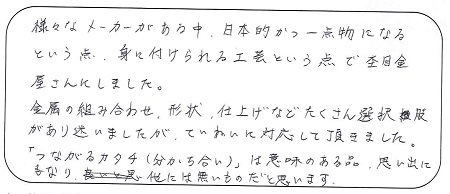 様々なメーカーがある中、日本的かつ一点物になる
という点、身に付けられる工芸という点で杢目金
屋さんにしました。
金属の組み合わせ、形状、仕上げなどたくさん選択機肢
があり迷いましたが、ていねいに対応して頂きました。
「つながるカタチ(分かち合い)」は意味のある品、思い出に
もなり、他には無いものだと思います。